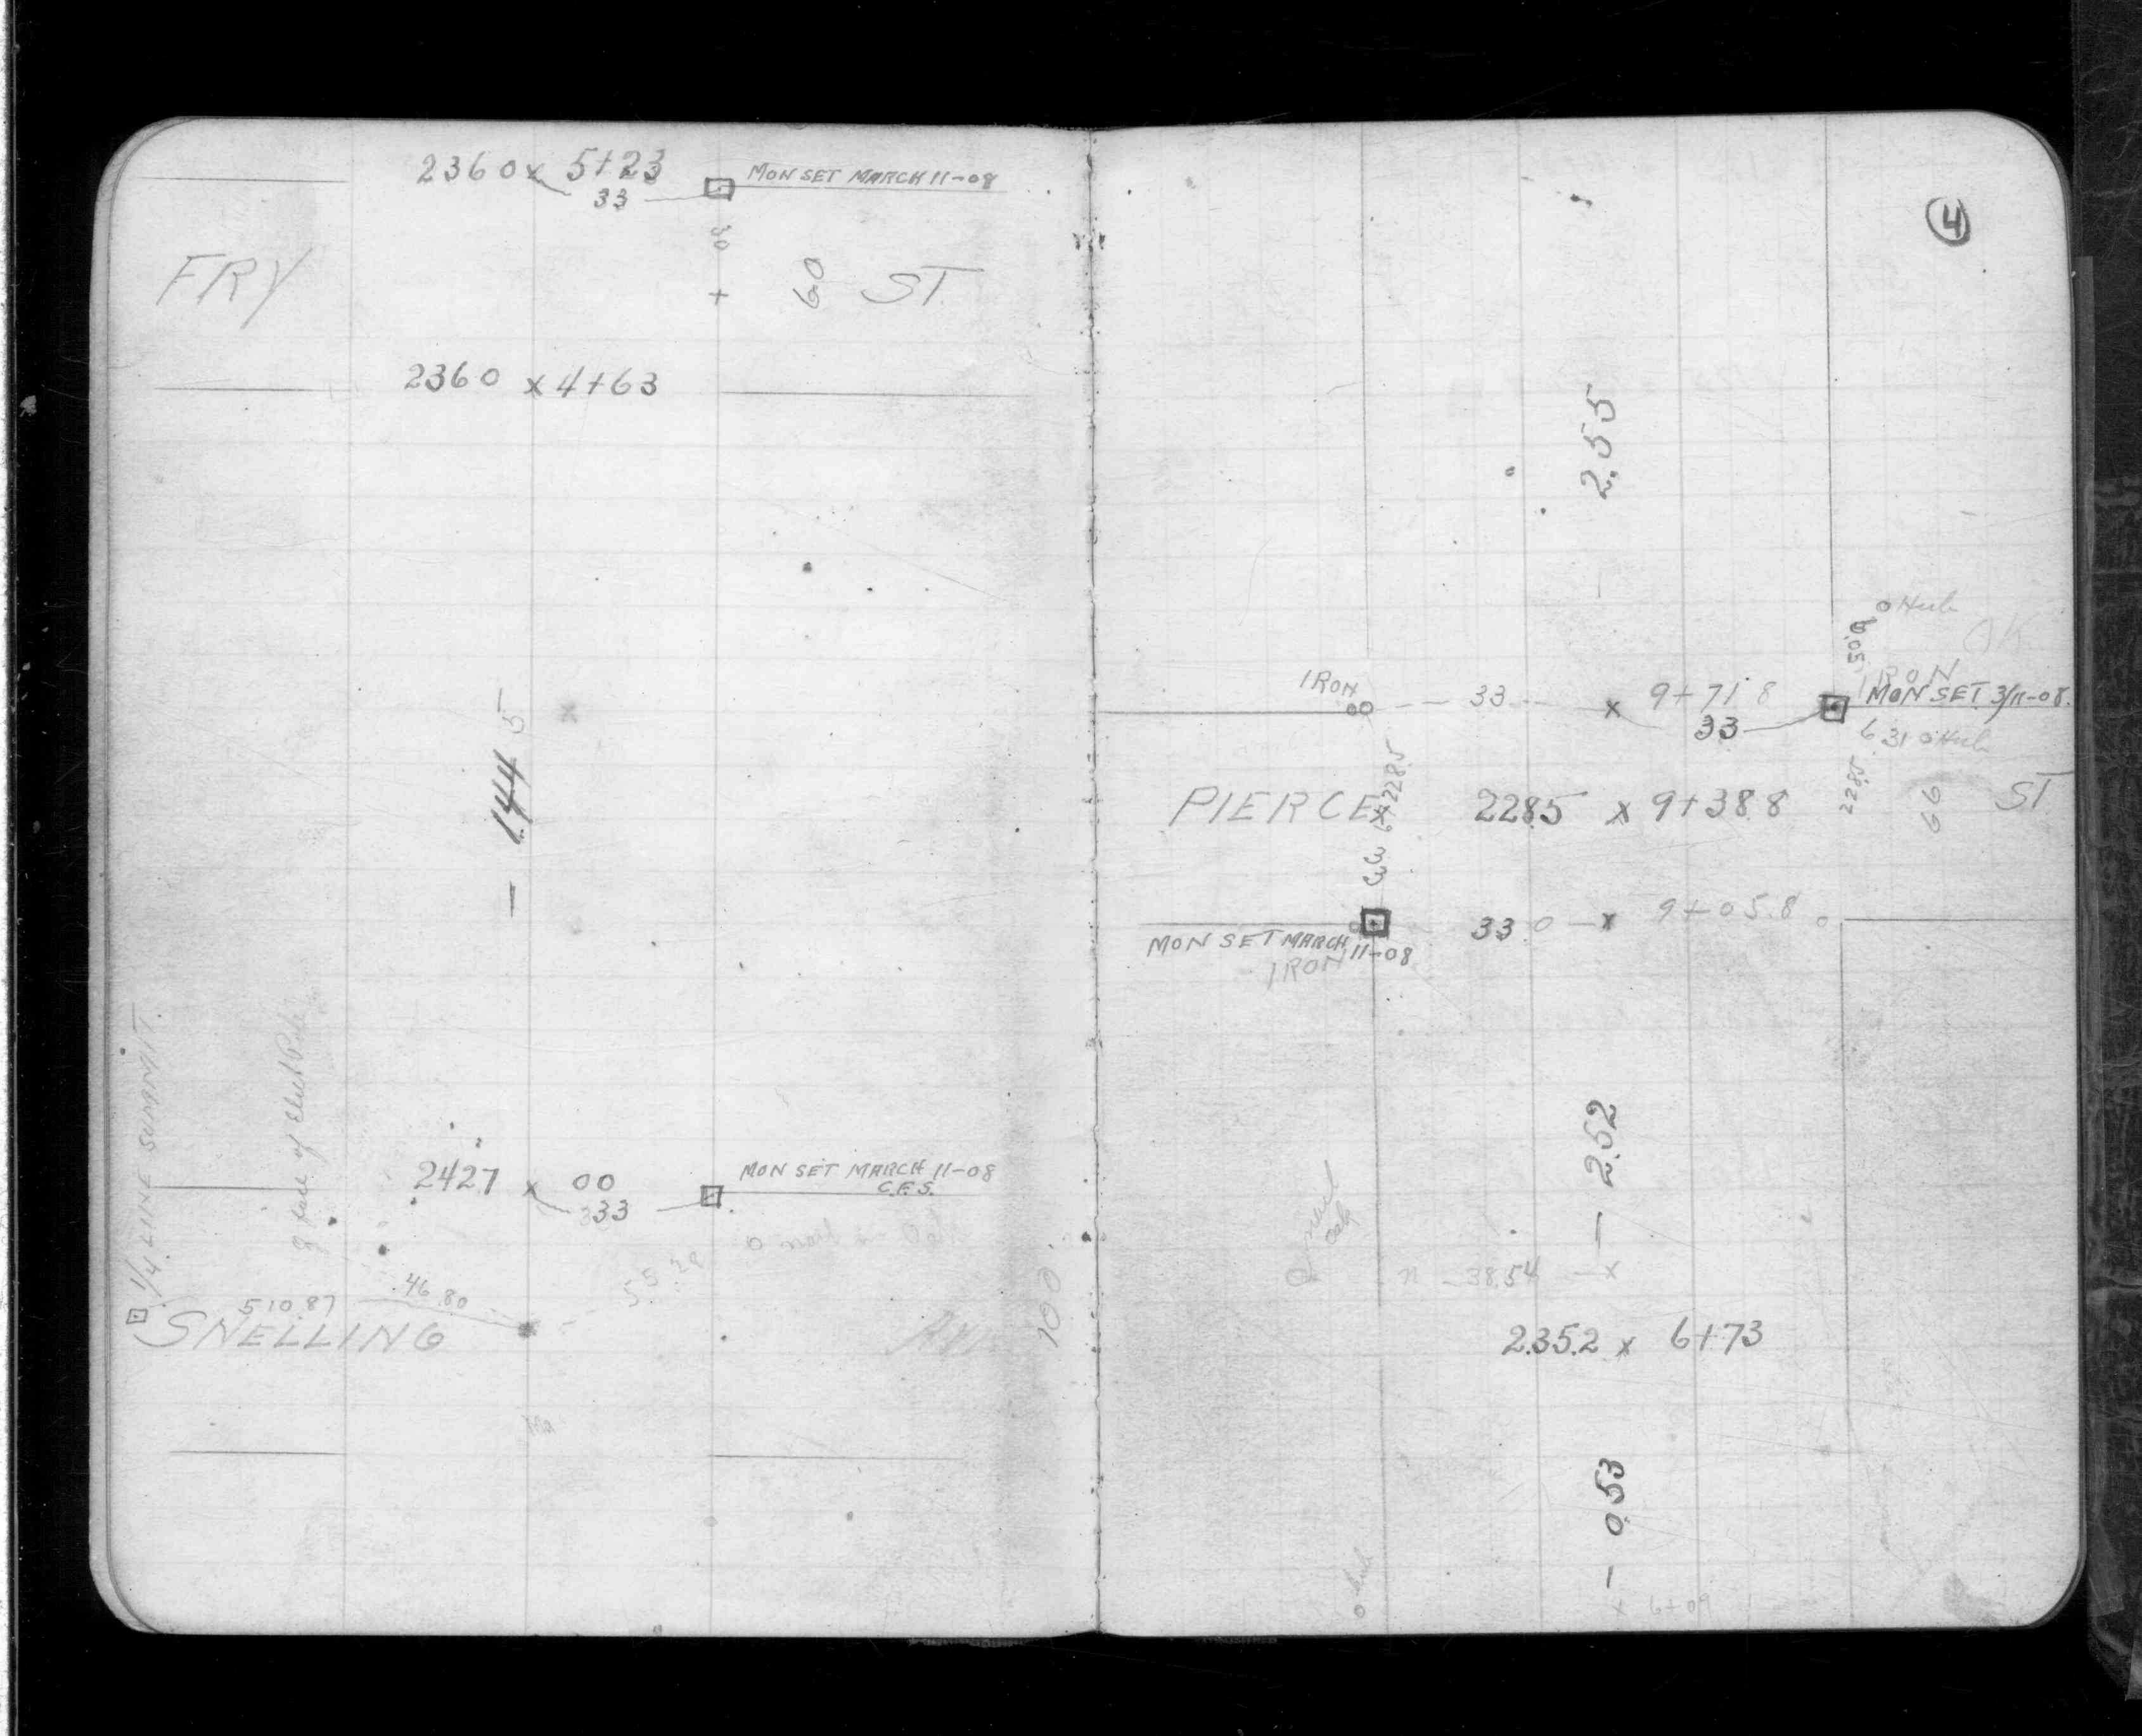 2360 x 5+23
33
MON SET MARCH 11-08
FRY
60
ST.
2360 x 4+63
1445
1/4 LINE SUMMIT.
face of
2427 x 00
33
MON SET MARCH 11-08
C.F.S.
510.87
46.80
55.29
SNELLING
AV.
100
4
2.55
o Hub
50.0
IRON
33
x 9+71.8
IRON
MON SET 3/11-08.
33
6 31 o Hub
PIERCE
2285
2285 x 9+38.8
2285
66
ST
33
33.0 - x 9+05.8
MON SET MARCH 11-08
IRON
2.52
38.54 - x
2352 x 6+73
0.53
o Hub
x 6+09